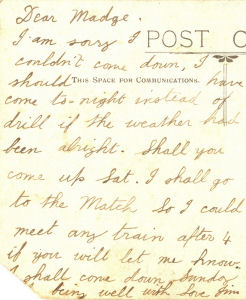 Dear Madge.
I am sorry I
POST C
couldn't come down, I
should have
THIS SPACE FOR COMMUNICATIONS.
come to-night instead of
drill if the weather had
been alright. Shall you
come up Sat. I shall go
to the Match so I could
meet any train after 4
if you will let me know.
I shall come down Sunday
being well with love Jim